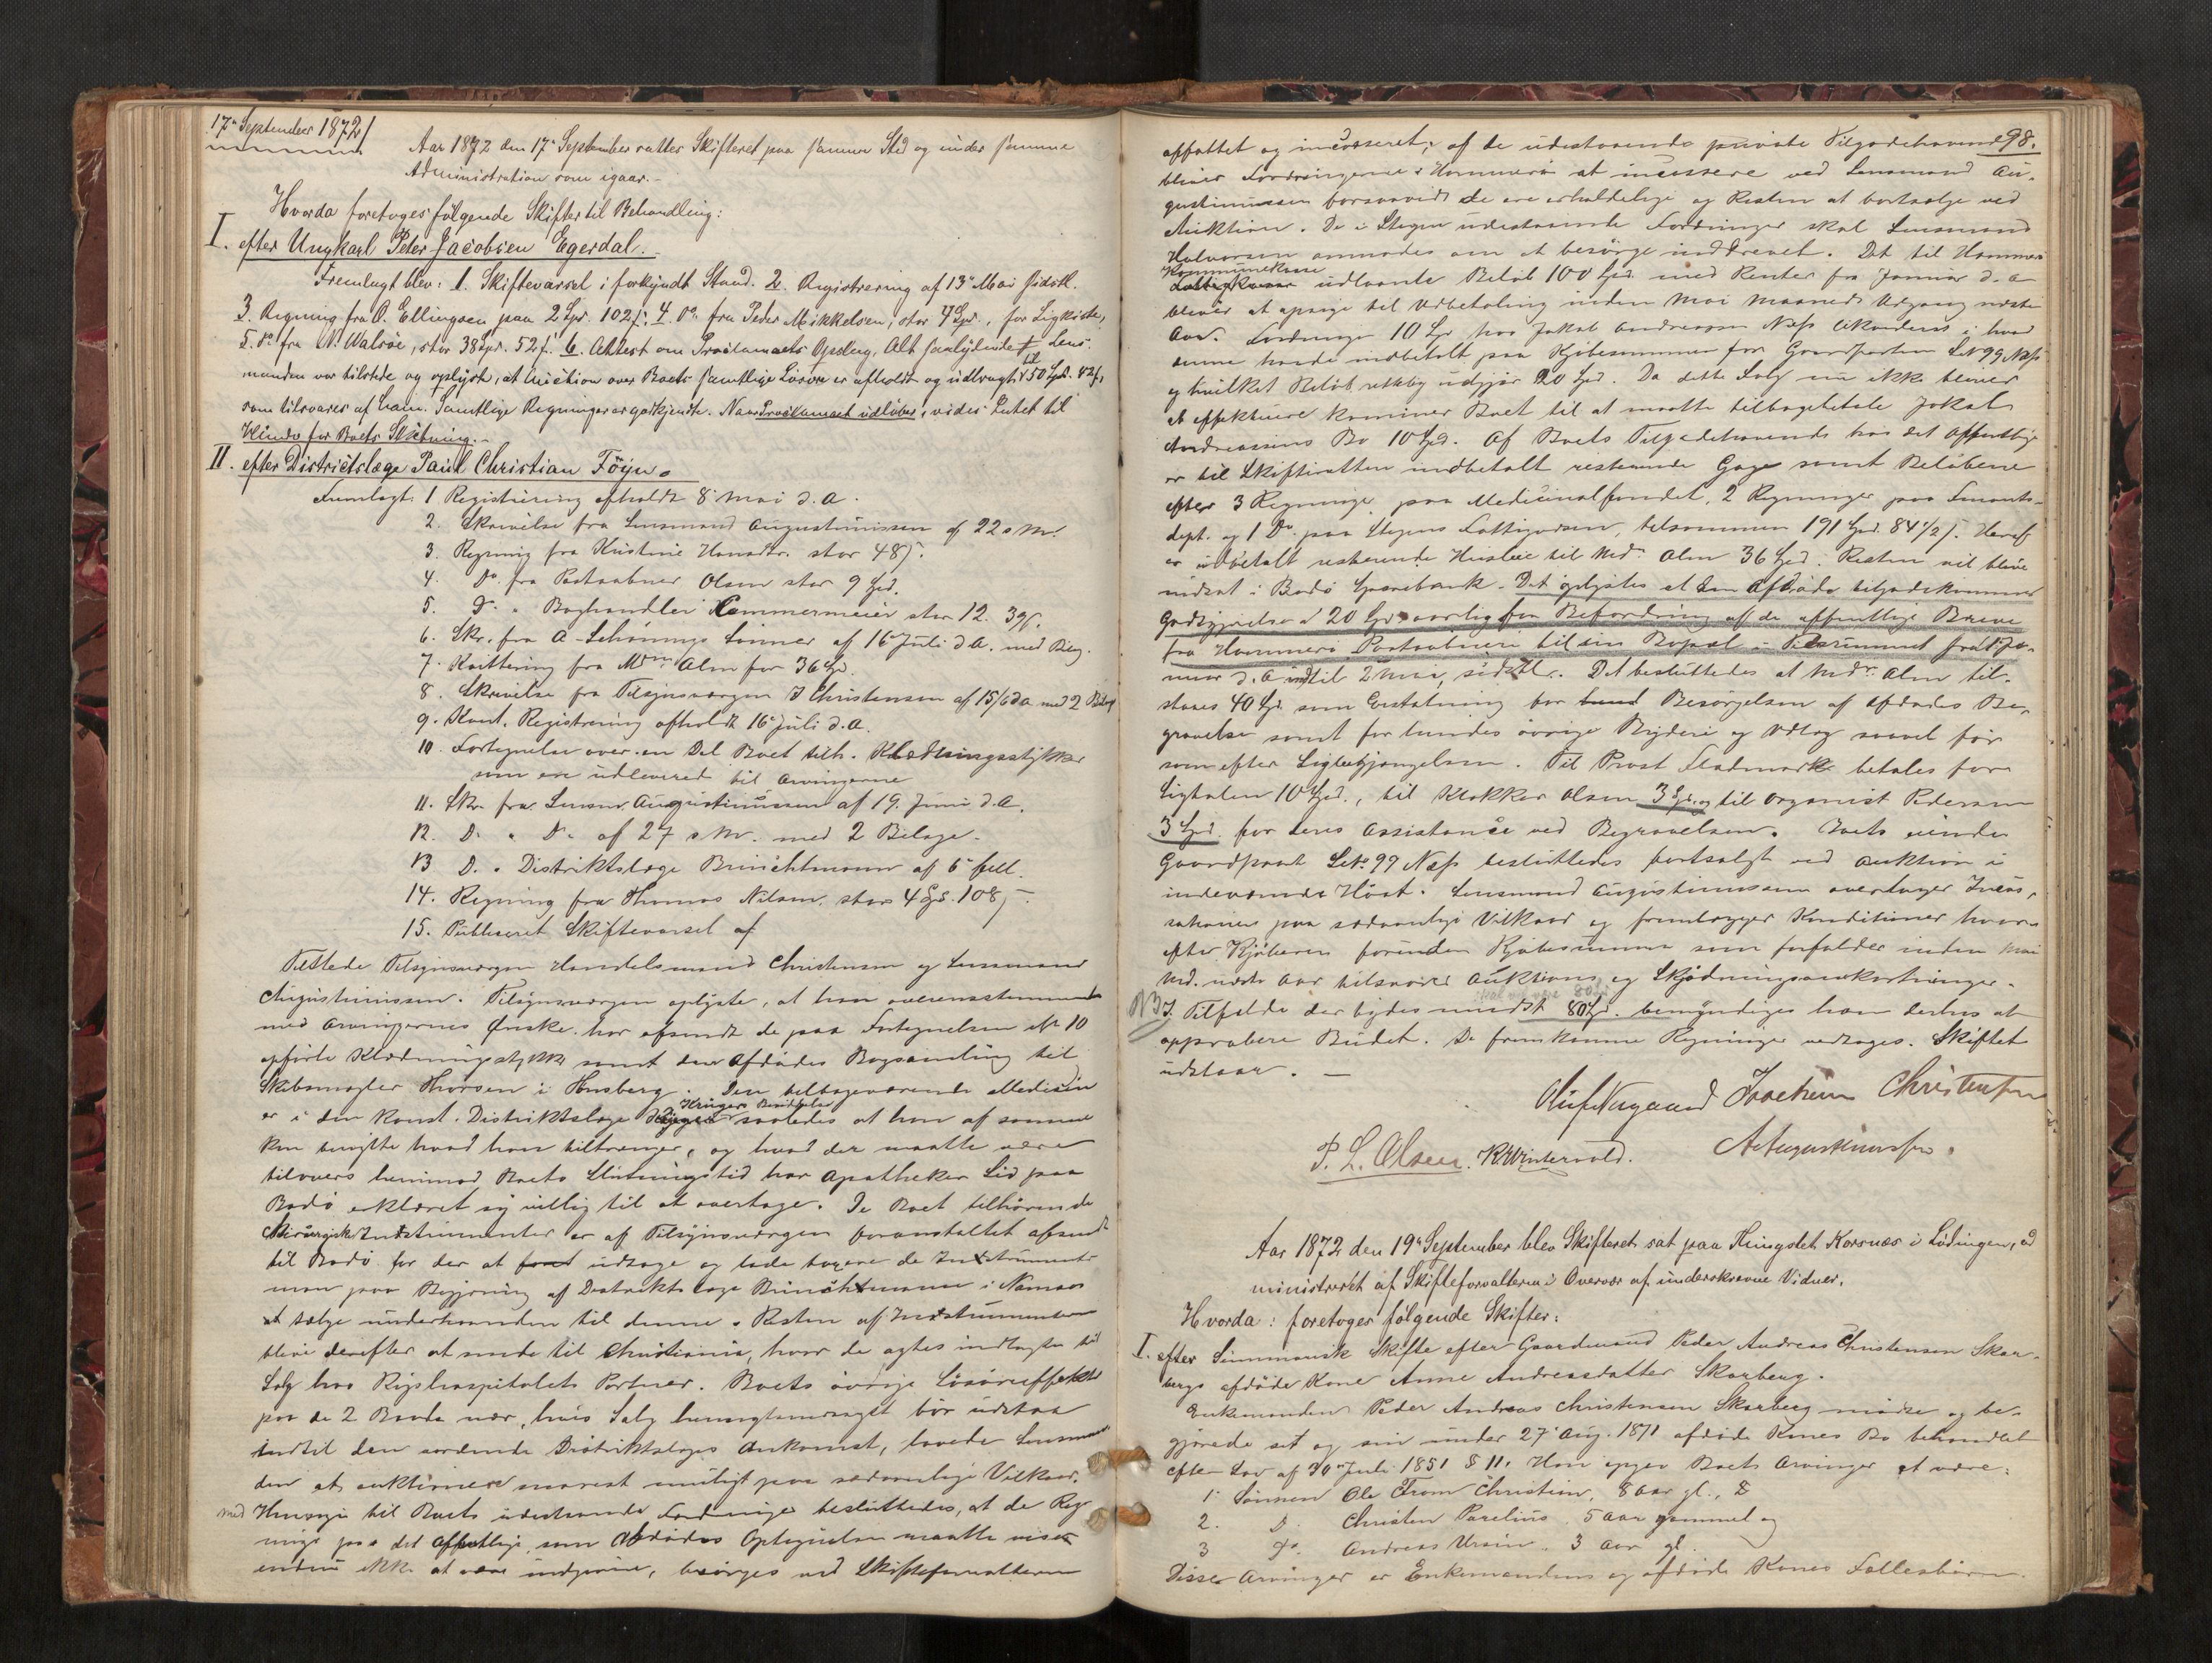 17de September 1872/
Aar 1872 den 17de September sattes Skifteret paa samme Sted og under samme
Administration som igaar.-
Hvorda foretoges følgende Skifter til Behandling:
I. efter Ungkarl Peter Jacobsen Egerdal.
Fremlagt blev: 1. Skiftevarsel i forkyndt Stand. 2. Registrering af 13de Mai sidstl.
3. Regning fra O. Ellingsen paa 2 Spd. 102 s; 4. Do fra Peder Mikkelsen, stor 4 Spd., for Ligkiste,
5. do fra N. Walsøe, stor 38 Spd. 52 s. 6. Attest om Proclamaets Opslag, Alt saalydende # Lens-
manden var tilstede og oplyste, at Auction over Boets samtlige Løsøre er afholdt og udbragt til 50 Spd. 42 s,
som tilsvares af ham. Samtlige Regninger er godkjendte. Naar Proclamaet udløber, vides Intet til
Hinder for Boets Slutning.-
II. efter Districtslæge Paul Christian Föyn.
Fremlagt: 1 Registrering afholdt 8de Mai d. A.
2. Skrivelse fra Lensmand Augustinussen af 22 s. M.
3. Regning fra Kristine Hansdtr. stor 48 s.
4. Do fra Postaabner Olsen stor 9 Spd.
5. Do " Boghandler Cammermeier stor 12. 39 s.
6. Skr. fra A. Schönings Sønner af 16de Juli d. A. med Bilag.
7. Kvittering fra Mdm Alm for 36 Spd.
8. Skrivelse fra Tilsynsværgen J Christensen af 15/6 d. A. med 2 Bilag
9. Kont. Registrering afholdt 16de Juli d. A.
10. Fortegnelse over en Del Boet tilh. Klædningsstykker
som ere udleveret til Arvingerne
11. Skr. fra Lensm. Augustinussen af 19. Juni d. A.
12. D. " D. af 27 s. M. med 2 Bilage.
13 D. " Distriktslæge Brinchmann af 6te
14. Regning fra Thomas Nilsen, stor 4 Spd. 108 s.
15. Publiceret Skiftevarsel af
Tilstede Tilsynsværgen Handelsmand Christensen og Lensmand
Augustinussen. Tilsynsværgen oplyste, at han overensstemmende
med Arvingernes Ønske har afsendt de paa Fortegnelsen No 10
opførte Klædningsstykker samt den Afdødes Bogsamling til
Skibsmægler Thorsen i Tønsberg. Den tilbageværende Medicin
er i den konst. Distriktslæge Krügers Besiddelse saaledes at han af samme
kan benytte hvad han tiltrænger, og hvad der maatte være
tilovers henimod Boets Slutningstid har Apotheker Lid paa
Bodø erklæret sig villig til at overtage. De Boet tilhørende
chirurgiske Instrumenter er af Tilsynsværgen foranstaltet afsendt
til Bodø for der at udtage og lade taxere de Instrumenter
man paa Begjæring af Distriktslæge Brinchmann i Namsos
at sælge underhaanden til denne. Resten af Instrumenterne
blive derefter at sende til Christiania, hvor de agtes indlagte til
Salg hos Rigshospitalets Portner. Boets øvrige Løsøreeffekter
paa de 2 Baade nær, hvis Salg bør udstaa
indtil den vordende Distriktslæges Ankomst, lovede Lensman-
den at auktionere snarest muligt paa sædvanlige Vilkaar.
Med Hensyn til Boets udestaaende Fordringer besluttedes, at de Reg-
ninger paa det Offentlige, som Afdødes Optegnelser maatte vise
endnu ikke at være indgivne, besørges ved Skifteforvalteren
98.
affattet og incasseret; af de udestaaende private Tilgodehavende
bliver Fordringerne i Hammerø at incassere ved Lensmand Au-
gustinussen forsaavidt de ere erholdelige og Resten at bortsælge ved
Auktion. De i Stegen udestaaende Fordringer skal Lensmand
Halvorsen anmodes om at besørge inddrevet. Det til Hammerø
Kommunekasse udlaante Beløb 100 Spd. med Renter fra Januar d. A
bliver at opsige til Udbetaling inden Mai Maaneds Udgang næste
Aar. Fordringen 10 Spd hos Jakob Andreassen Næss likvideres i hvad
denne havde indbetalt paa Kjøbesummen for Gaardparten Lno 99 Næss
og hvilket Beløb rettelig udgjør 20 Spd. Da dette Salg nu ikke bliver
at effektuere kommer Boet til at maatte tilbagebetale Jakob
Andreassens Bo 10 Spd. Af Boets Tilgodehavende hos det Offentlige
er til Skifteretten indbetalt resterende Gage samt Beløbene
efter 3 Regninger paa Medicinalfondet, 2 Regninger paa Finants-
dept. og 1 Do paa Stegens Fattigvæsen, tilsammen 191 Spd. 84 1/2 s. Heraf
er udbetalt resterende Husleie til Mdm Alm 36 Spd. Resten vil blive
indsat i Bodø Sparebank. Det oplystes at den Afdøde tilgodekommer
Godtgjørelse à 20 Spd. aarlig for Befordring af de offentlige Breve
fra Hammerø Postaabneri til sin Bopæl i Tidsrummet fra 1ste Ja-
nuar d. A indtil 2 Mai, sidstl. Det besluttedes at Mdm Alm til-
staaes 40 Spd. som Erstatning for Besørgelsen af Afdødes Be-
gravelse samt for hendes øvrige Bryderi og Udlæg saavel før
som efter Ligbegjængelsen. Til Provst Fladmark betales for
Ligtalen 10 Spd., til Klokker Olsen 3 Spd. og til Organist Pedersen
3 Spd. for deres Assistance ved Begravelsen. Boets eiende
Gaardpart Lno 99 Næss besluttedes bortsolgt ved Auktion i
indeværende Høst. Lensmand Augustinussen overtager Incas-
sationen paa sædvanlige Vilkaar og fremlægger Konditioner hvor-
efter Kjøberen foruden Kjøbesummen som forfalder inden Mai
Md. næste Aar tilsvarer Auktions og Skjødningsomkostninger.
NB. I Tilfælde der bydes mindst 80 Spd. bemyndiges han derhos at
approbere Budet. De fremkomne Regninger vedtages. Skiftet
udstaar. —
Oluf Nygaard Joachim Christensen
P. L. Olsen. K Wintervold. A Augustinussen.
Aar 1872 den 19de September blev Skifteret sat paa Thingstedet Korsnæs i Lødingen, ad
ministreret af Skifteforvalteren i Overvær af underskrevne Vidner.
Hvorda: foretoges følgende Skifter:
I. efter Summarisk Skifte efter Gaardmand Peder Andreas Christensen Skar-
bergs afdøde Kone Anne Andreasdatter Skarberg.
Enkemanden Peder Andreas Christensen Skarberg mødte og be-
gjærede sit og sin under 27de Aug. 1871 afdøde Kones Bo behandlet
efter Lov af 30te Juli 1851 § 11. Han opgav Boets Arvinger at være:
1. Sønnen Ole From Christian, 8 Aar gl.,
2. D. Christen Parelius. 5 Aar gammel og
3 Do. Andreas Ursin. 3 Aar gl.
Disse Arvinger er Enkemandens og afdøde Kones Fællesbørn.